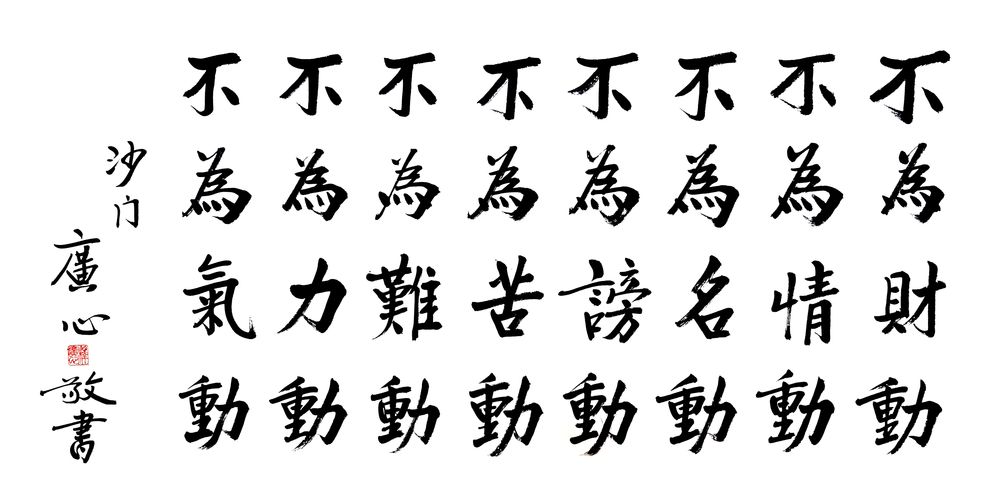 不為財動
不為情動
不為名動
不為謗動
不為苦動
不為難動
不為力動
不為氣動
沙门
廣心敬書